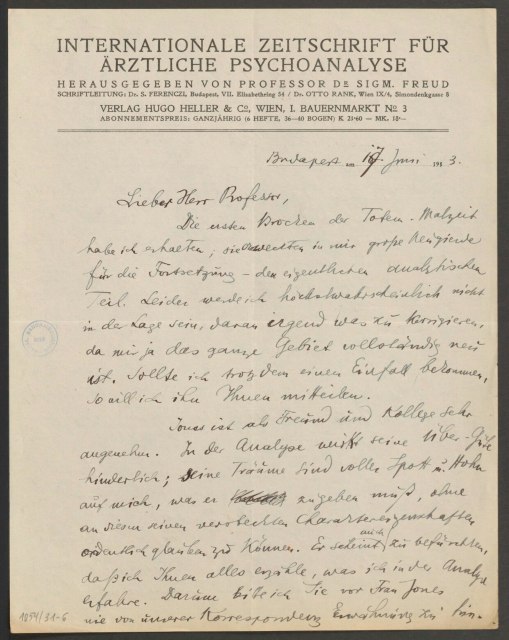 INTERNATIONALE ZEITSCHRIFT FÜR
ÄRZTLICHE PSYCHOANALYSE
HERAUSGEGEBEN VON PROFESSOR DR SIGM. FREUD
SCHRIFTLEITUNG: Dr. S. FERENCZI, Budapest, VII. Elisabethring 54 / Dr. OTTO RANK, Wien IX/4, Simondenkgasse 8
VERLAG HUGO HELLER & Co, WIEN, I. BAUERNMARKT No 3
ABONNEMENTSPREIS: GANZJÄHRIG (6 HEFTE, 36—40 BOGEN) K 21·60 — MK. 18·—
Budapest am 17. Juni 1913.
Lieber Herr Professor,
Die ersten Brocken der Totem-Malzeit
habe ich erhalten; sie weckten in mir große Neugierde
für die Fortsetzung – den eigentlichen analytischen
Teil. Leider werde ich höchstwahrscheinlich nicht
in der Lage sein, daran irgend was zu korrigieren,
da mir ja das ganze Gebiet vollständig neu
ist. Sollte ich trotzdem einen Einfall bekommen,
so will ich ihn Ihnen mitteilen.
Jones ist als Freund und Kollege sehr
angenehm. In der Analyse wirkt seine Über-Güte
hinderlich; seine Träume sind voller Spott u. Hohn
auf mich, was er zugeben muß, ohne
an diesen versteckten Charaktereigenschaften
ordentlich glauben zu können. Er scheint auch zu befürchten,
daß ich Ihnen alles erzähle, was ich in der Analyse
erfahre. Darum bitte ich Sie vor Frau Jones
nie von unserer Korrespondenz Erwähnung zu tun.
1054/31-6